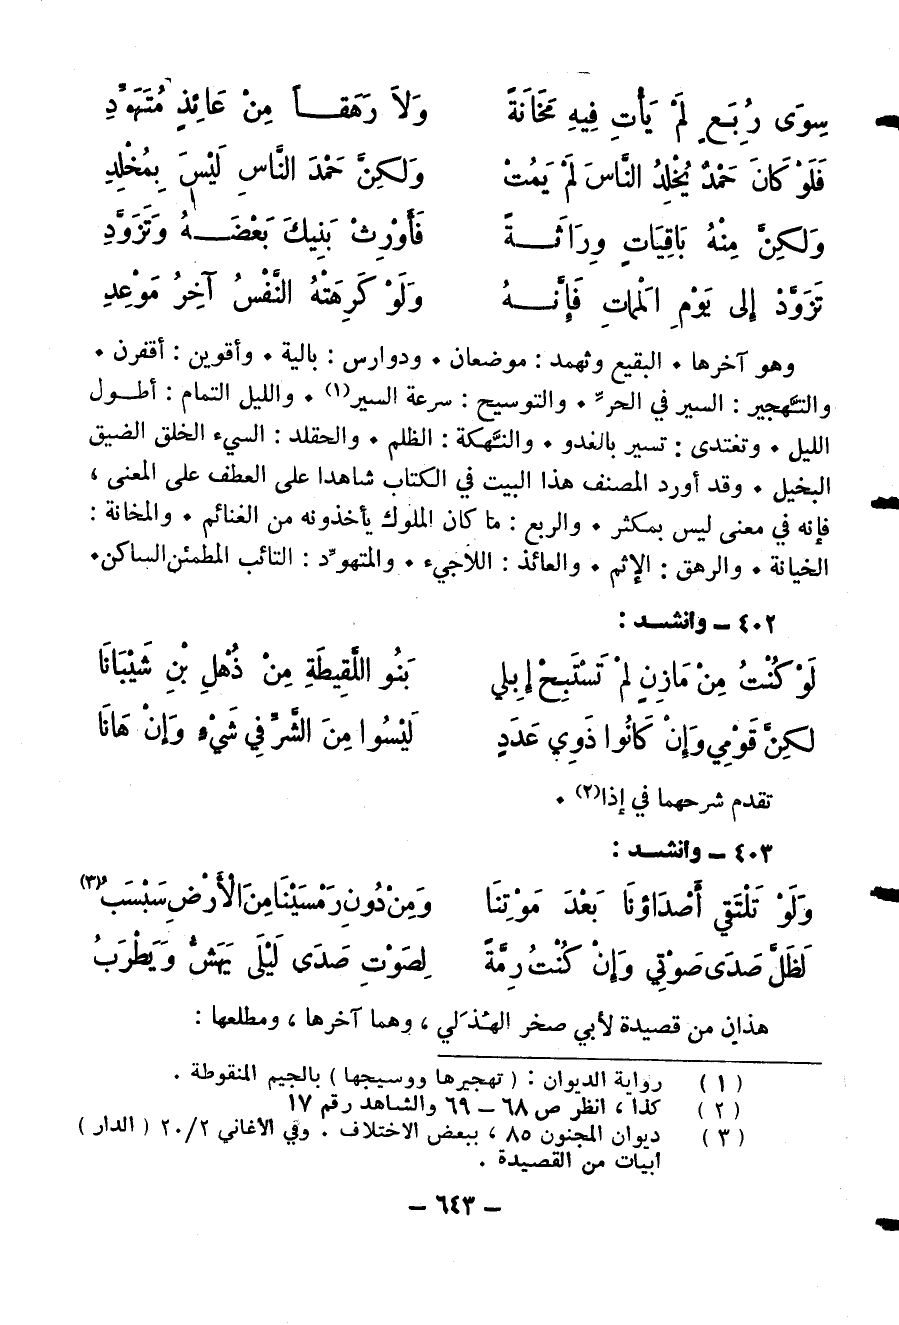 سِوَى رُبُعٍ لَمْ يَأْتِ فِيهِ مَخَانَةً وَلاَ رَهَقـــاً مِنْ عَائِذٍ مُتَهَوِّدِ
فَلَوْ كَانَ حَمْدٌ يُخْلِدُ النَّاسَ لَمْ يَمُتْ وَلكِنَّ حَمْدَ النَّاسِ لَيْسَ بِمُخْلِدِ
وَلكِنَّ مِنْهُ بَاقِيَاتٍ وِرَاثَـــةً فَأَوْرِثْ بَنِيكَ بَعْضَـــهُ وَتَزَوَّدِ
تَزَوَّدْ إِلى يَوْمِ المَمَاتِ فَإِنَّـــهُ وَلَوْ كَرِهَتْهُ النَّفْسُ آخِرُ مَوْعِدِ
وهو آخرها • البقيع وثهمد : موضعان • ودوارس : بالية • وأقوين : أقفرن •
والتَّهجير : السير في الحرِّ • والتوسيح : سرعة السير(١) • والليل التمام : أطـول
الليل • وتغتدى : تسير بالغدو • والنَّهكة : الظلم • والحقلد : السيء الخلق الضيق
البخيل • وقد أورد المصنف هذا البيت في الكتاب شاهدا على العطف على المعنى ،
فإنه في معنى ليس بمكثر • والربع : ما كان الملوك يأخذونه من الغنائم • والمخانة :
الخيانة • والرهق : الإثم • والعائذ : اللاجيء • والمتهوِّد : التائب المطمئن الساكن•
٤٠٢ – وأنشـــد :
لَوْ كُنْتُ مِنْ مَازِنٍ لَمْ تَسْتَبِحْ إِبِلي بَنُو اللَّقِيطَةِ مِنْ ذُهْلِ بْنِ شَيْبَانَا
لكِنَّ قَوْمِي وَإِنْ كَانُوا ذَوِي عَدَدٍ لَيْسُوا مِنَ الشَّرِّ فِي شَيْءٍ وَإِنْ هَانَا
تقدم شرحهما في إذا(٢) •
٤٠٣ – وأنشـــد :
وَلَوْ تَلْتَقِي أَصْدَاؤنَا بَعْدَ مَوْتِنَا وَمِنْ دُونِ رَمْسَيْنَا مِنَ الْأَرْضِ سَبْسَبُ(٣)
لَظَلَّ صَدَى صَوْتِي وَإِنْ كُنْتُ رِمَّةً لِصَوْتِ صَدَى لَيْلَى يَهَشُّ وَيَطْرَبُ
هذان من قصيدة لأبي صخر الهُذَلي ، وهما آخرها ، ومطلعها :
(١) رواية الديوان : ( تهجيرها ووسيجها ) بالجيم المنقوطة .
(٢) كذا ، انظر ص ٦٨ – ٦٩ والشاهد رقم ١٧
(٣) ديوان المجنون ٨٥ ، ببعض الاختلاف . وفي الأغاني ٢٠/٢ ( الدار )
أبيات من القصيدة .
– ٦٤٣ –